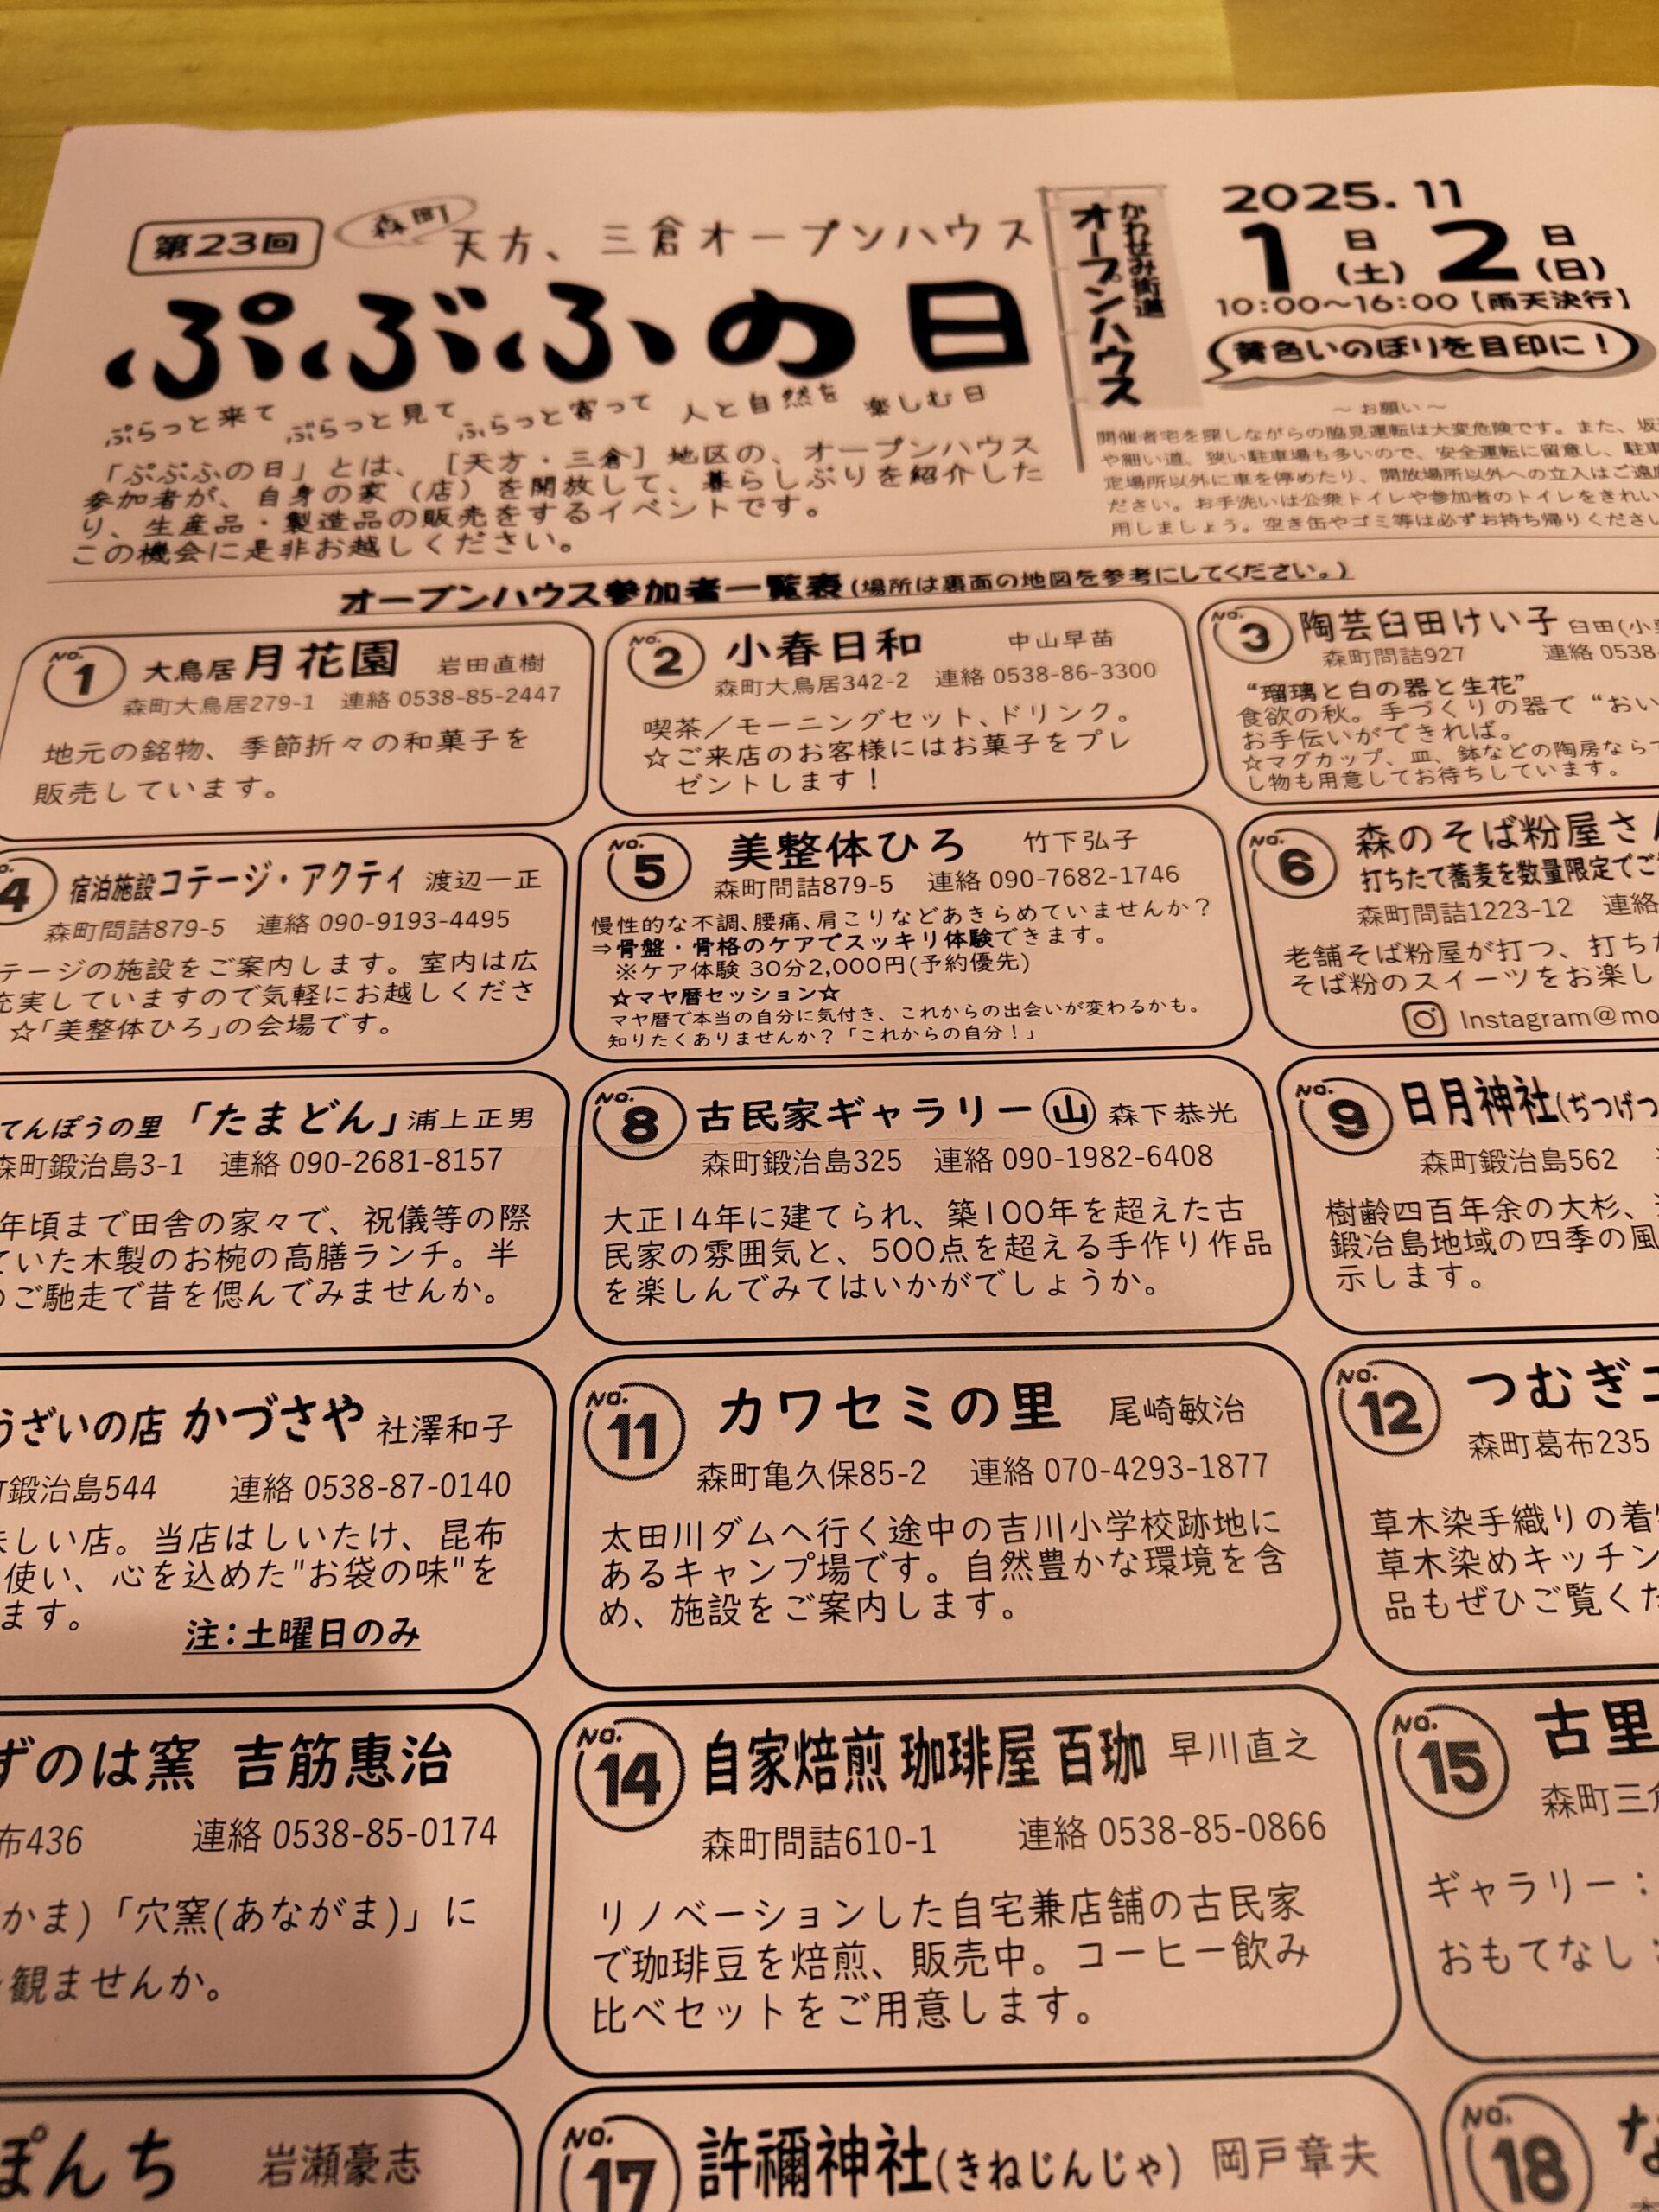 第23回
森町
天方、三倉オープンハウス
ぷぶふの日
ぷらっと来て ぶらっと見て ふらっと寄って 人と自然を 楽しむ日
かわせみ街道
オープンハウス
2025.11
1日(土) 2日(日)
10:00～16:00【雨天決行】
黄色いのぼりを目印に！
「ぷぶふの日」とは、［天方・三倉］地区の、オープンハウス
参加者が、自身の家（店）を開放して、暮らしぶりを紹介した
り、生産品・製造品の販売をするイベントです。
この機会に是非お越しください。
～お願い～
開催者宅を探しながらの脇見運転は大変危険です。また、坂
や細い道、狭い駐車場も多いので、安全運転に留意し、駐車
定場所以外に車を停めたり、開放場所以外への立入はご遠
ださい。お手洗いは公衆トイレや参加者のトイレをきれい
用しましょう。空き缶やゴミ等は必ずお持ち帰りくださ
オープンハウス参加者一覧表(場所は裏面の地図を参考にしてください。)
No.1 大鳥居 月花園 岩田直樹
森町大鳥居279-1 連絡 0538-85-2447
地元の銘物、季節折々の和菓子を
販売しています。
No.2 小春日和 中山早苗
森町大鳥居342-2 連絡 0538-86-3300
喫茶／モーニングセット、ドリンク。
☆ご来店のお客様にはお菓子をプレ
ゼントします！
No.3 陶芸臼田けい子 臼田(小
森町問詰927 連絡 0538-
“瑠璃と白の器と生花”
食欲の秋。手づくりの器で“おい
お手伝いができれば。
☆マグカップ、皿、鉢などの陶房なら
し物も用意してお待ちしています。
4 宿泊施設コテージ・アクティ 渡辺一正
森町問詰879-5 連絡 090-9193-4495
テージの施設をご案内します。室内は広
充実していますので気軽にお越しくださ
☆「美整体ひろ」の会場です。
No.5 美整体ひろ 竹下弘子
森町問詰879-5 連絡 090-7682-1746
慢性的な不調、腰痛、肩こりなどあきらめていませんか？
⇒骨盤・骨格のケアでスッキリ体験できます。
※ケア体験 30分2,000円(予約優先)
☆マヤ暦セッション☆
マヤ暦で本当の自分に気付き、これからの出会いが変わるかも。
知りたくありませんか？「これからの自分！」
No.6 森のそば粉屋さ
打ちたて蕎麦を数量限定でご
森町問詰1223-12 連絡
老舗そば粉屋が打つ、打ち
そば粉のスイーツをお楽し
Instagram@mo
てんぽうの里 「たまどん」 浦上正男
森町鍛治島3-1 連絡 090-2681-8157
年頃まで田舎の家々で、祝儀等の際
ていた木製のお椀の高膳ランチ。半
のご馳走で昔を偲んでみませんか。
No.8 古民家ギャラリー㊤山 森下恭光
森町鍛治島325 連絡 090-1982-6408
大正14年に建てられ、築100年を超えた古
民家の雰囲気と、500点を超える手作り作品
を楽しんでみてはいかがでしょうか。
No.9 日月神社(ぢつげつ
森町鍛治島562
樹齢四百年余の大杉、
鍛冶島地域の四季の風
示します。
うざいの店 かづさや 社澤和子
町鍛治島544 連絡 0538-87-0140
味しい店。当店はしいたけ、昆布
使い、心を込めた"お袋の味"を
ます。
注：土曜日のみ
No.11 カワセミの里 尾崎敏治
森町亀久保85-2 連絡 070-4293-1877
太田川ダムへ行く途中の吉川小学校跡地に
あるキャンプ場です。自然豊かな環境を含
め、施設をご案内します。
No.12 つむぎ
森町葛布235
草木染手織りの着
草木染めキッチン
品もぜひご覧くだ
ずのは窯 吉筋惠治
布436 連絡 0538-85-0174
かま)「穴窯(あながま)」に
観ませんか。
No.14 自家焙煎 珈琲屋 百珈 早川直之
森町問詰610-1 連絡 0538-85-0866
リノベーションした自宅兼店舗の古民家
で珈琲豆を焙煎、販売中。コーヒー飲み
比べセットをご用意します。
No.15 古里
森町三倉
ギャラリー：
おもてなし：
ぽんち 岩瀬豪志
No.17 許禰神社(きねじんじゃ) 岡戸章夫
No.18 な